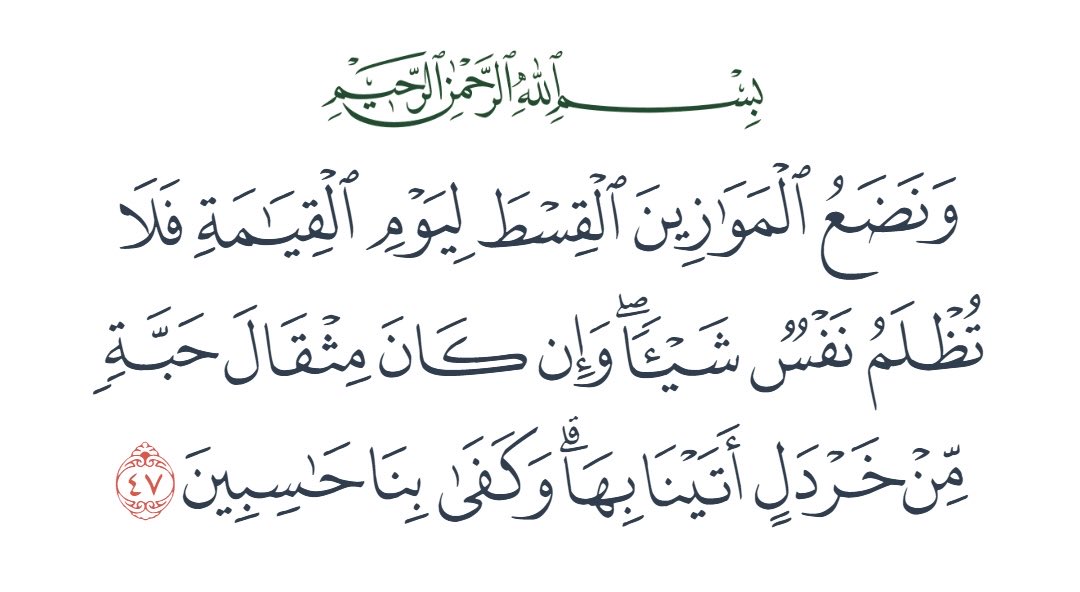 بِسْمِ ٱللَّهِ ٱلرَّحْمَٰنِ ٱلرَّحِيمِ
وَنَضَعُ ٱلْمَوَٰزِينَ ٱلْقِسْطَ لِيَوْمِ ٱلْقِيَٰمَةِ فَلَا
تُظْلَمُ نَفْسٌ شَيْـًٔا ۖ وَإِن كَانَ مِثْقَالَ حَبَّةٍ
مِّنْ خَرْدَلٍ أَتَيْنَا بِهَا ۗ وَكَفَىٰ بِنَا حَٰسِبِينَ ٤٧